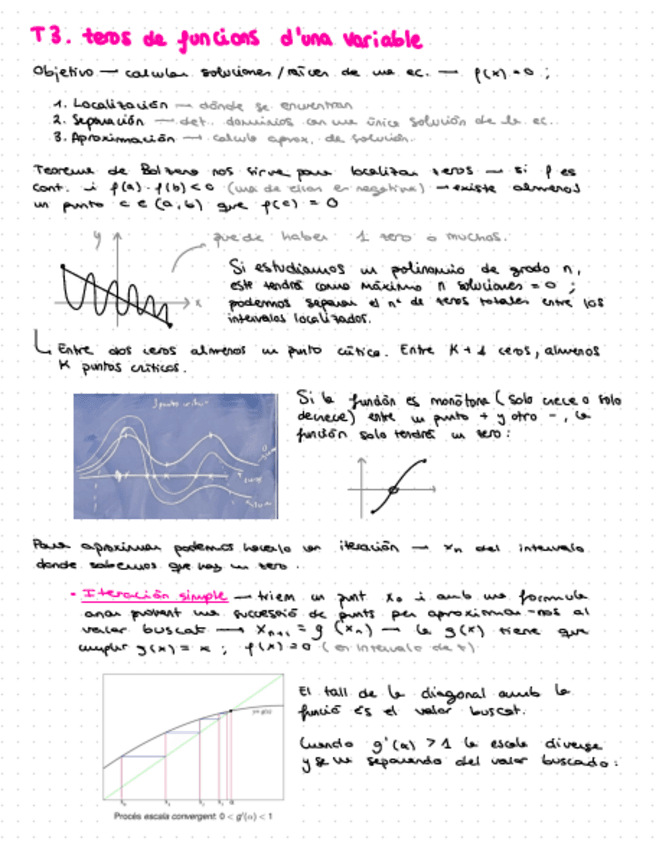 T3. zeros de funcions d'una variable
Objetivo — calcular soluciones/raíces de una ec. — f(x)=0 ;
1. Localización — dónde se encuentran
2. Separación — det. dominios con una única solución de la ec.
3. Aproximación — calculo aprox. de solución.
Teorema de Bolzano nos sirve para localizar zeros — si f es
cont. i f(a)·f(b)<0 (una de ellas es negativa) — existe almenos
un punto c ∈ (a,b) que f(c) = 0
y
puede haber 1 zero o muchos.
x
Si estudiamos un polinomio de grado n,
este tendrá como máximo n soluciones = 0 ;
podemos separar el nº de zeros totales entre los
intervalos localizados.
Entre dos ceros almenos un punto crítico. Entre K+1 ceros, almenos
K puntos críticos.
Si la función es monótona (solo crece o solo
decrece) entre un punto + y otro -, la
función solo tendrá un zero:
Para aproximar podemos hacerlo con iteración — xn del intervalo
donde sabemos que hay un zero.
• Iteración simple — triem un punt x0 i amb una formula
anar provant una successió de punts per aproximar-nos al
valor buscat → xn+1 = g (xn) — la g(x) tiene que
cumplir g(x) = x ; f(x)=0
y=g(x)
El tall de la diagonal amb la
funció és el valor buscat.
Cuando g'(α) > 1 la escala diverge
y se va separando del valor buscado:
Procés escala convergent 0 < g'(α) < 1